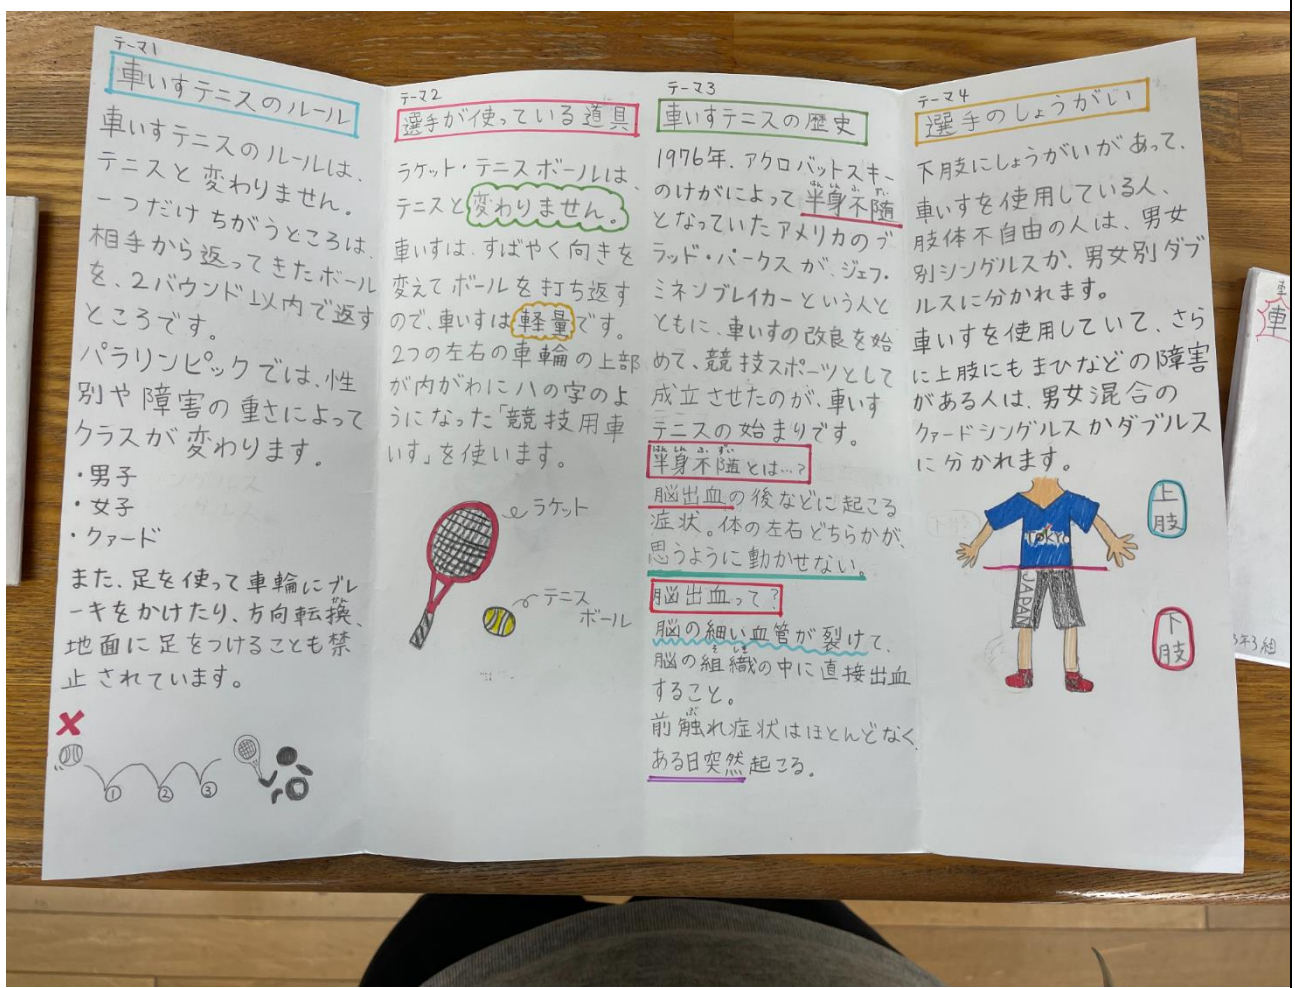 テーマ1
車いすテニスのルール
車いすテニスのルールは、
テニスと変わりません。
一つだけちがうところは、
相手から返ってきたボール
を、2バウンド以内で返す
ところです。
パラリンピックでは、性
別や障害の重さによって
クラスが変わります。
・男子
・女子
・クァード
また、足を使って車輪にブレ
ーキをかけたり、方向転換、
地面に足をつけることも禁
止されています。
①
②
③
テーマ2
選手が使っている道具
ラケット・テニスボールは、
テニスと変わりません。
車いすは、すばやく向きを
変えてボールを打ち返す
ので、車いすは軽量です。
2つの左右の車輪の上部
が内がわにハの字のよ
うになった「競技用車
いす」を使います。
ラケット
テニス
ボール
テーマ3
車いすテニスの歴史
1976年、アクロバットスキー
のけがによって半身不随
となっていたアメリカのブ
ラッド・パークスが、ジェフ・
ミネンブレイカーという人と
ともに、車いすの改良を始
めて、競技スポーツとして
成立させたのが、車いす
テニスの始まりです。
半身不随とは…?
脳出血の後などに起こる
症状。体の左右どちらかが、
思うように動かせない。
脳出血って?
脳の細い血管が裂けて、
脳の組織の中に直接出血
すること。
前触れ症状はほとんどなく、
ある日突然起こる。
テーマ4
選手のしょうがい
下肢にしょうがいがあって、
車いすを使用している人、
肢体不自由の人は、男女
別シングルスか、男女別ダブ
ルスに分かれます。
車いすを使用していて、さら
に上肢にもまひなどの障害
がある人は、男女混合の
クァードシングルスかダブルス
に分かれます。
上肢
TOKYO
JAPAN
下肢
車
年3組